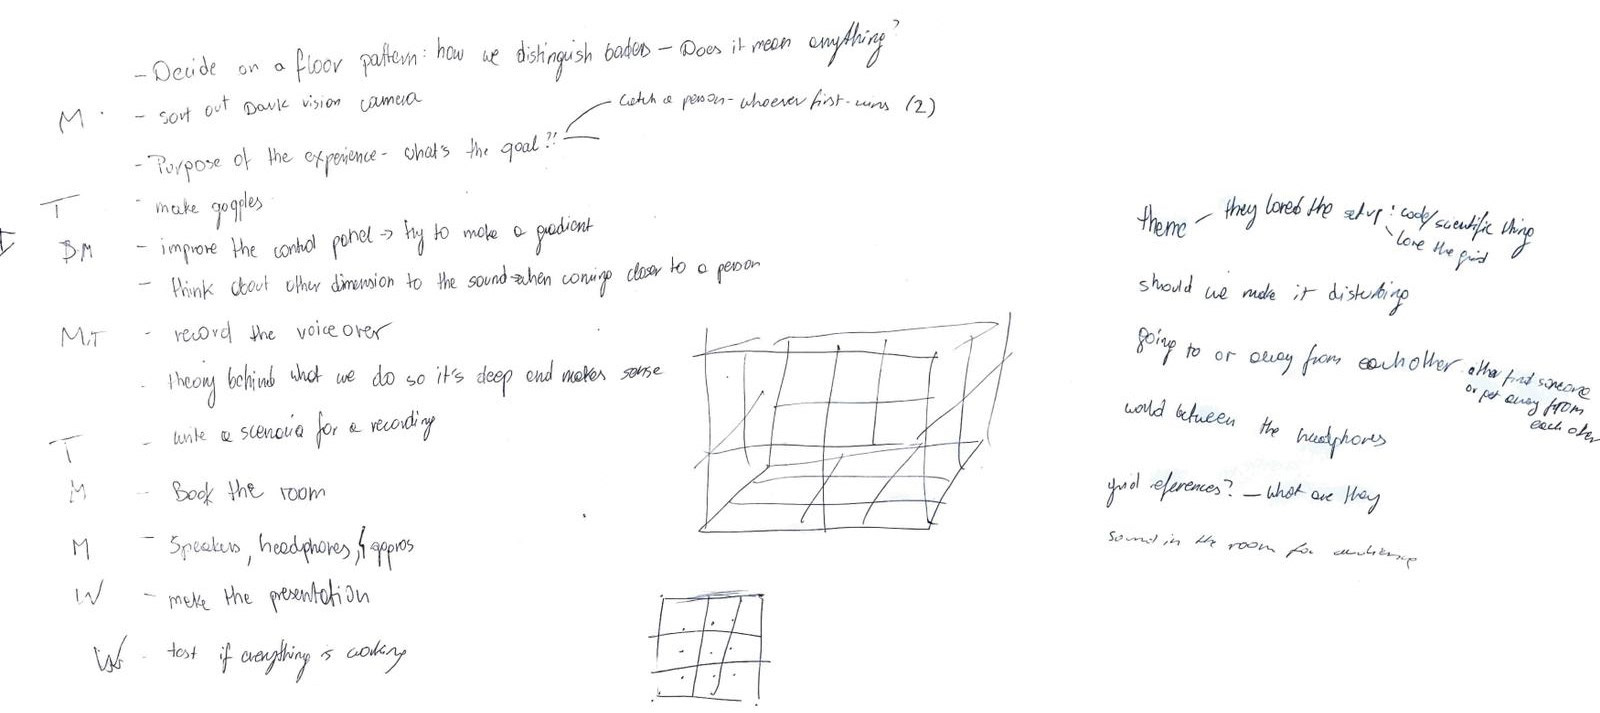 - Decide on a floor pattern: how we distinguish - Does it mean anything?
M - sort out Dark vision camera
catch a person - whoever first - wins (2)
- Purpose of the experience - what's the goal?!
T - make goggles
BM - improve the control panel → try to make a gradient
- think about other dimension to the sound → when coming closer to a person
M,T - record the voice over
- theory behind what we do so it's deep and makes sense
T - write a scenario for a recording
M - Book the room
M - Speakers, headphones, gopros
W - make the presentation
W - test if everything is working
theme - they loved the setup: code/scientific thing
love the grid
should we make it disturbing
going to or away from each other
find someone
or get away from
each other
would between the headphones
grid references? - what are they
sound in the room for audience